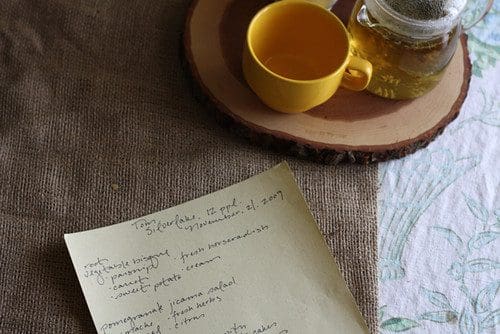 Tom
Silverlake. 12 ppl.
November. 21. 2009
root
vegetable bisque
· parsnip · fresh horseradish
· carrot
· sweet potato · cream
pomegranate jicama salad
· fresh herbs
· citrus
cakes